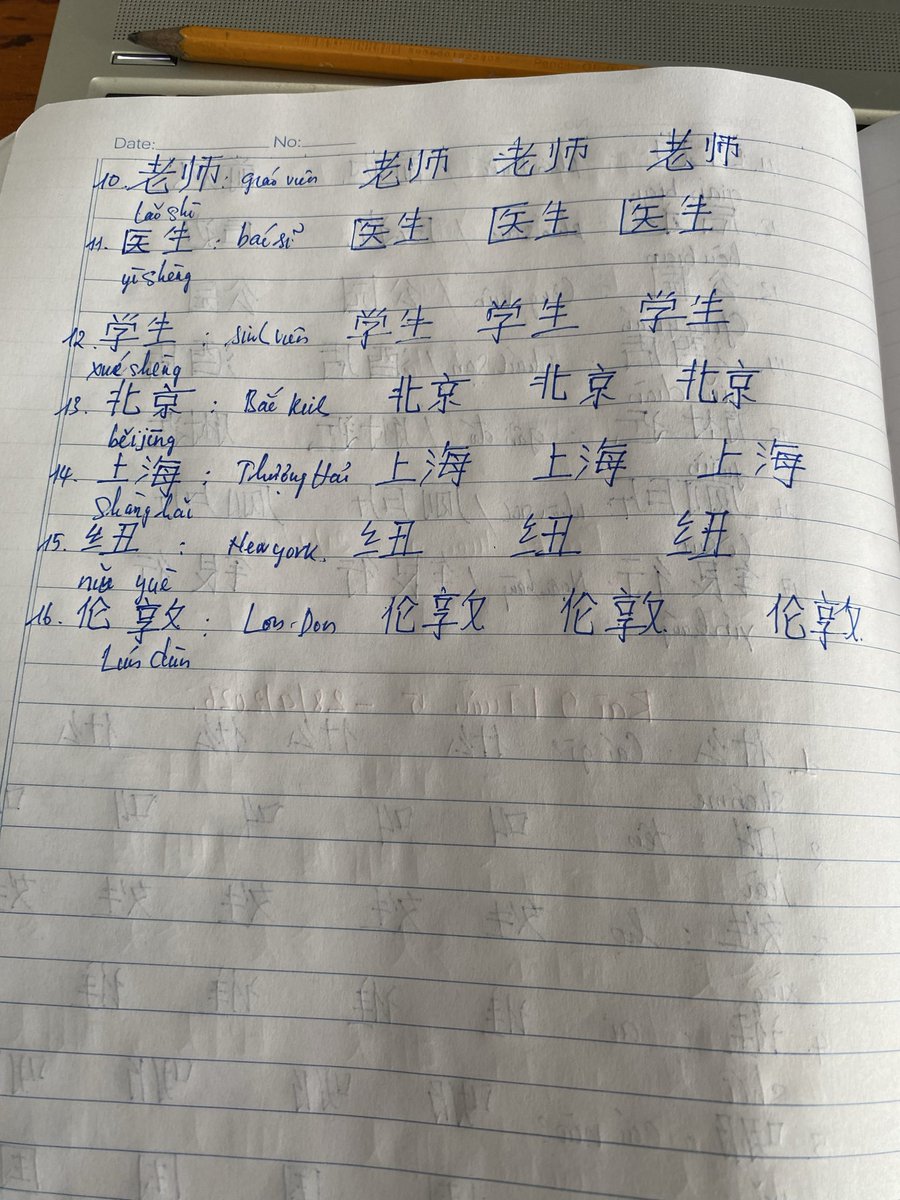 Date: No:
10. 老师: giáo viên 老师 老师 老师
lǎo shī
11. 医生: bác sĩ 医生 医生 医生
yī shēng
12. 学生: sinh viên 学生 学生 学生
xué shēng
13. 北京: Bắc Kinh 北京 北京 北京
běijīng
14. 上海: Thượng Hải 上海 上海 上海
Shàng hǎi
15. 纽: New york. 纽 纽 纽
niǔ yuē
16. 伦敦: Lon-Don 伦敦 伦敦 伦敦
Lún dūn